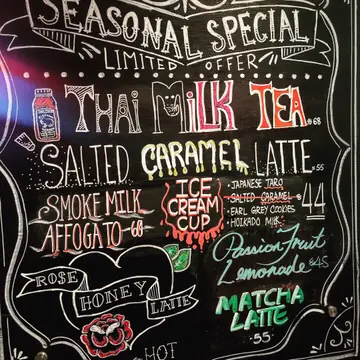 SEASONAL SPECIAL
LIMITED OFFER
THAI MILK TEA 68
SALTED CARAMEL LATTE 55
SMOKE MILK
AFFOGATO 68
ICE
CREAM
CUP
• JAPANESE TARO
• SALTED CARAMEL
• EARL GREY COOKIES
• HOIKADO MILK
44
Passion Fruit
Lemonade 45
ROSE
HONEY
LATTE
HOT
MATCHA
LATTE
-55-